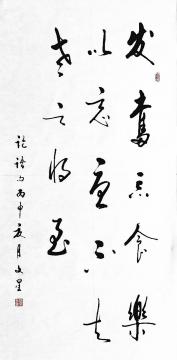 发奮忘食樂
以忘憂不知
老之将至
论语句丙申夏月文星